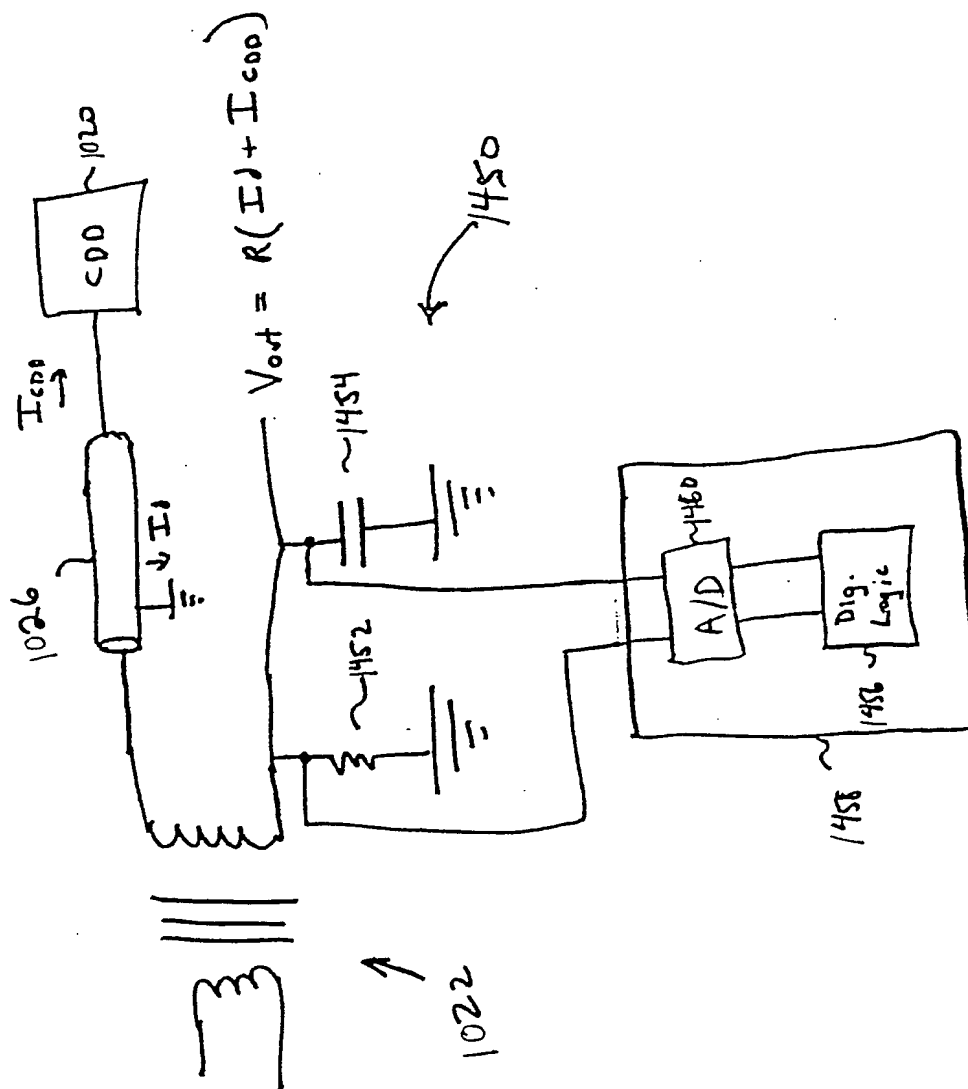 1020
CDD
I CDD →
1026
← Id
Vout = R(Id + I CDD)
1454
1450
1452
1460
A/D
Dig.
Logic
1456
1458
1022